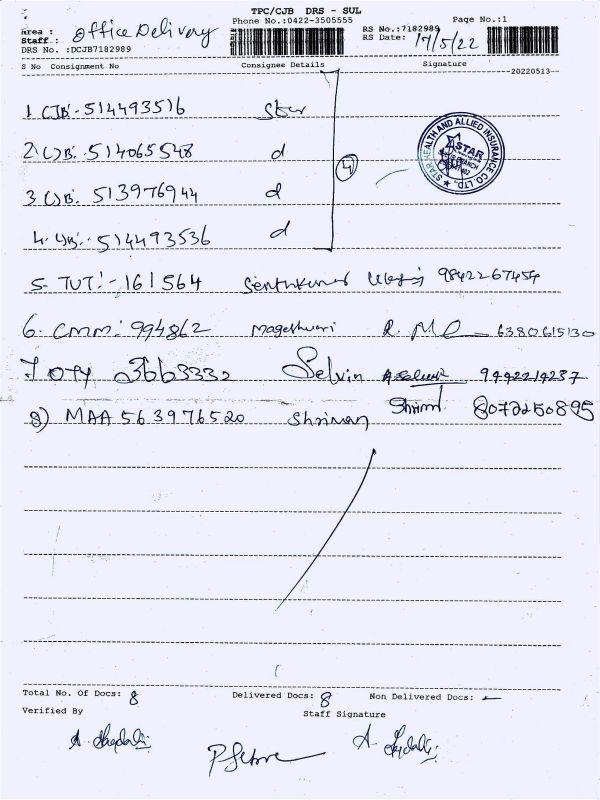 TPC/CJB DRS - SUL
Area : Office Delivery Phone No.:0422-3505555 Page No.:1
Staff : RS No.:7182989
DRS No. :DCJB7182989 RS Date: 17/5/22
S No Consignment No Consignee Details Signature
20220513
1 CJB:- 514493516 Star
2. CJB:- 514065548 d
3. CJB: 513976944 d
4. CJB:- 514493536 d
4
STAR HEALTH AND ALLIED INSURANCE CO. LTD.
STAR
BRANCH
5. TUT:- 161564 Senthikumar 9842267454
6. CMM: 994862 Mageshwari R. M 6380615130
7 OTY 3663332 Selvin A. Selvin 9442214237
8) MAA 563976520 Shriman Shrima 8072250895
Total No. Of Docs: 8 Delivered Docs: 8 Non Delivered Docs: -
Verified By Staff Signature